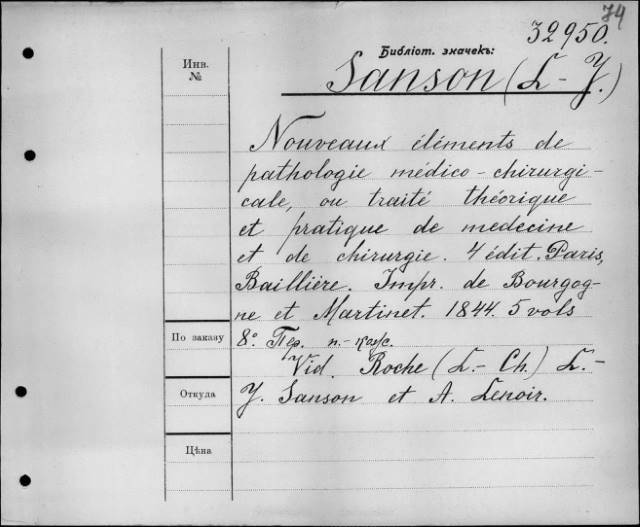 74
32950.
Библіот. значекъ:
Sanson (L.-J.)
Инв.
№
Nouveaux éléments de
pathologie médico-chirurgi-
cale, ou traité théorique
et pratique de medecine
et de chirurgie. 4 édit. Paris,
Baillière. Impr. de Bourgog-
ne et Martinet. 1844. 5 vols
По заказу
8°. Пер. п.-кож.
Vid. Roche (L.-Ch.) L.-
Откуда
J. Sanson et A. Lenoir.
Цѣна